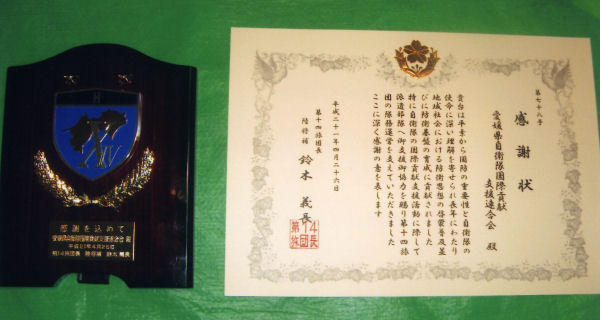 第七十八号
感謝状
愛媛県自衛隊国際貢献
支援連合会 殿
貴台は平素から国防の重要性と自衛隊の
使命に深い理解を寄せられ長年にわたり
地域社会における防衛思想の啓蒙普及並
びに防衛基盤の育成に貢献されました
特に自衛隊の国際貢献支援活動に際して
派遣部隊へ御支援御協力を賜り第十四旅
団の隊務運営を支えていただきました
ここに深く感謝の意を表します
平成二十一年四月二十六日
第十四旅団長
陸将補 鈴木 義長
第14
旅団長
XIV
感謝を込めて
愛媛県自衛隊国際貢献支援連合会 殿
平成21年4月26日
第14旅団長 陸将補 鈴木 義長